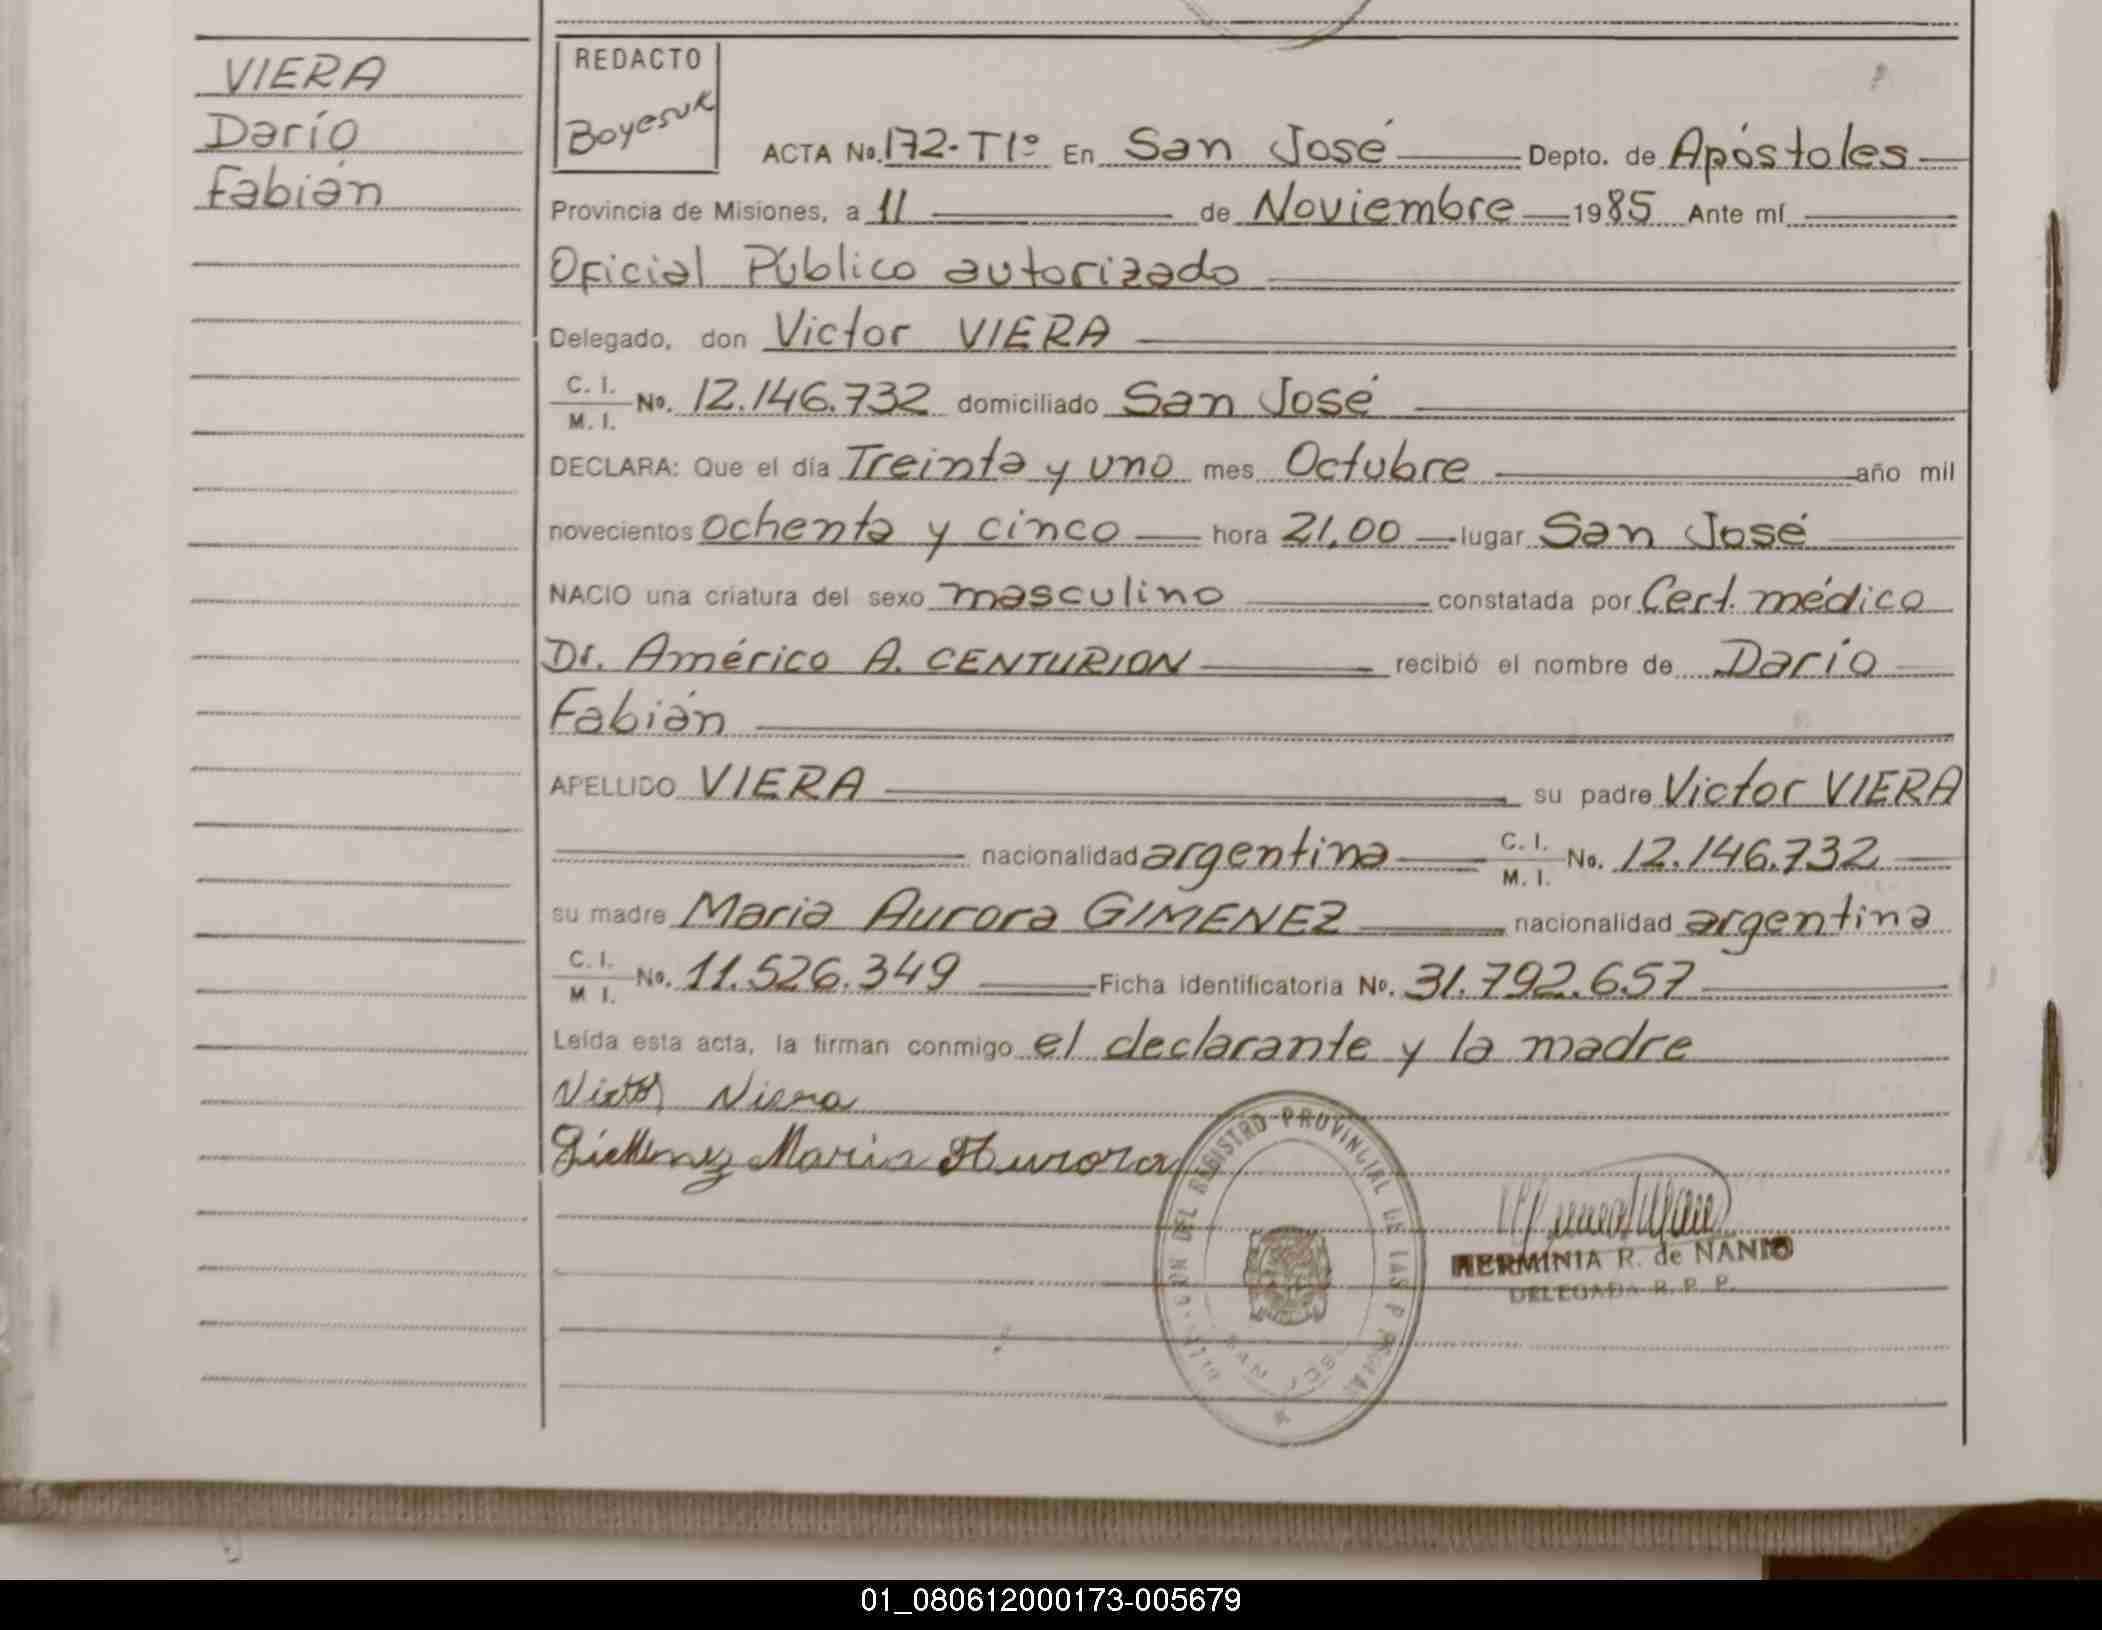 VIERA
Darío
Fabián
REDACTO
Boyesuk
ACTA No. 172-T1º En San José Depto. de Apóstoles
Provincia de Misiones, a 11 de Noviembre 1985 Ante mí
Oficial Público autorizado
Delegado, don Victor VIERA
C. I.
M. I. No. 12.146.732 domiciliado San José
DECLARA: Que el día Treinta y uno mes Octubre año mil
novecientos ochenta y cinco hora 21,00 lugar San José
NACIO una criatura del sexo masculino constatada por Cert. médico
Dr. Américo A. CENTURION recibió el nombre de Darío
Fabián
APELLIDO VIERA su padre Victor VIERA
nacionalidad argentina C. I.
M. I. No. 12.146.732
su madre Maria Aurora GIMENEZ nacionalidad argentina
C. I.
M I. No. 11.526.349 Ficha identificatoria No. 31.792.657
Leída esta acta, la firman conmigo el declarante y la madre
Victor Viera
Gimenez Maria Aurora
DEL REGISTRO PROVINCIAL DE LAS PERSONAS
SAN JOSE
HERMINIA R. de NANIO
DELEGADA R. P. P.
01_080612000173-005679